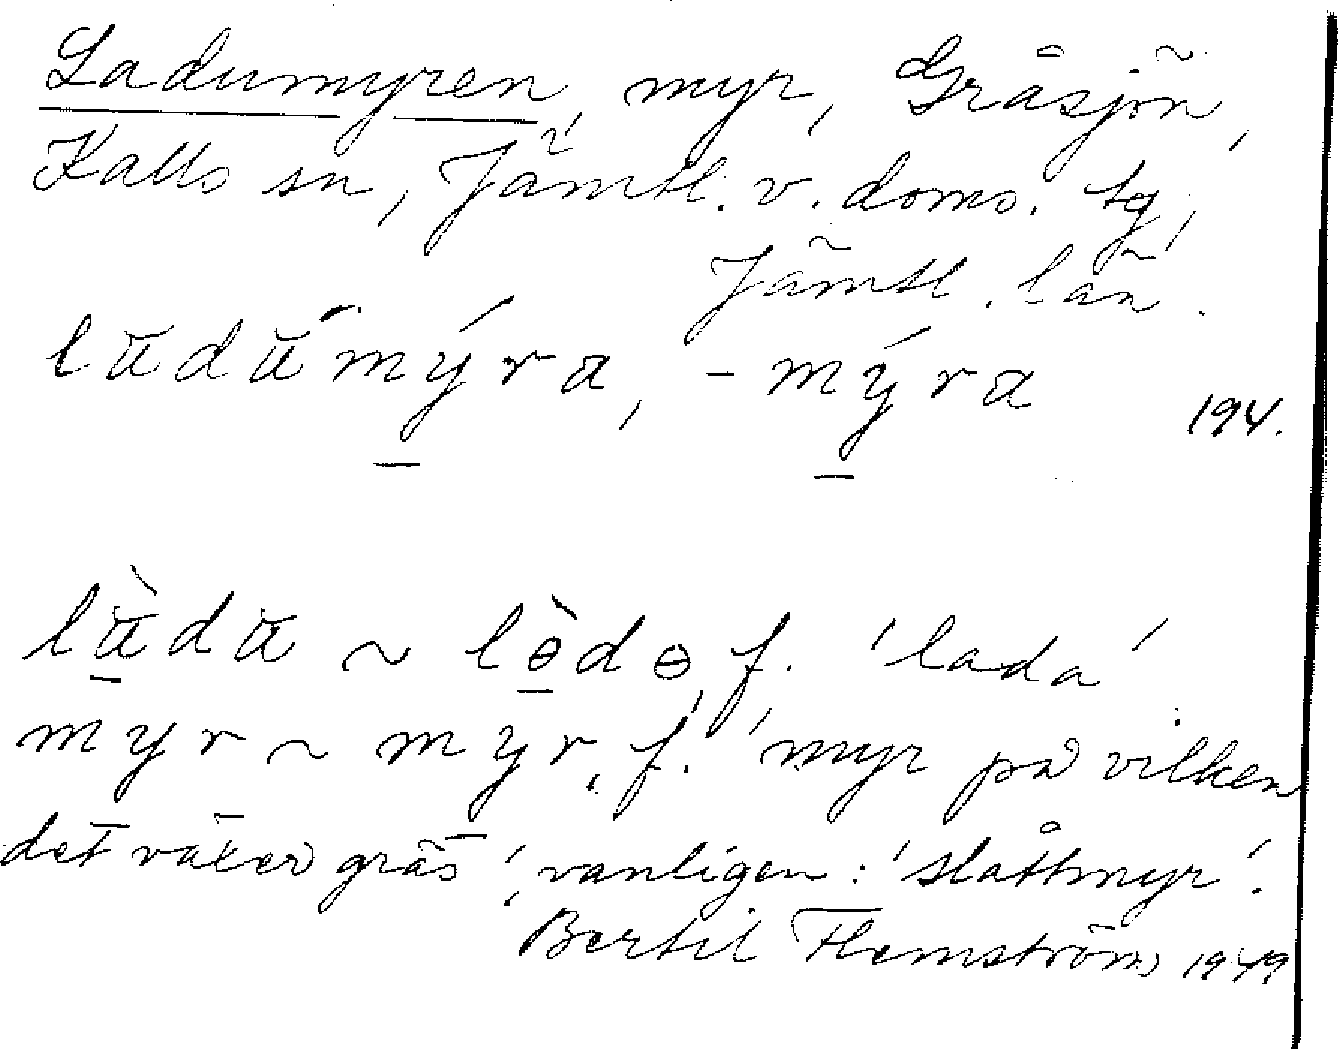 Ladumyren, myr, Gråsjön,
Kalls sn, Jämtl. v. doms. tg,
Jämtl. län.
lădắmýra, -mýra
194.
lădă ~ lɵ̀dɵ, f. 'lada'
myr ~ myr, f. 'myr på vilken
det växer gräs', vanligen: 'slåttmyr'.
Bertil Flemström 1949